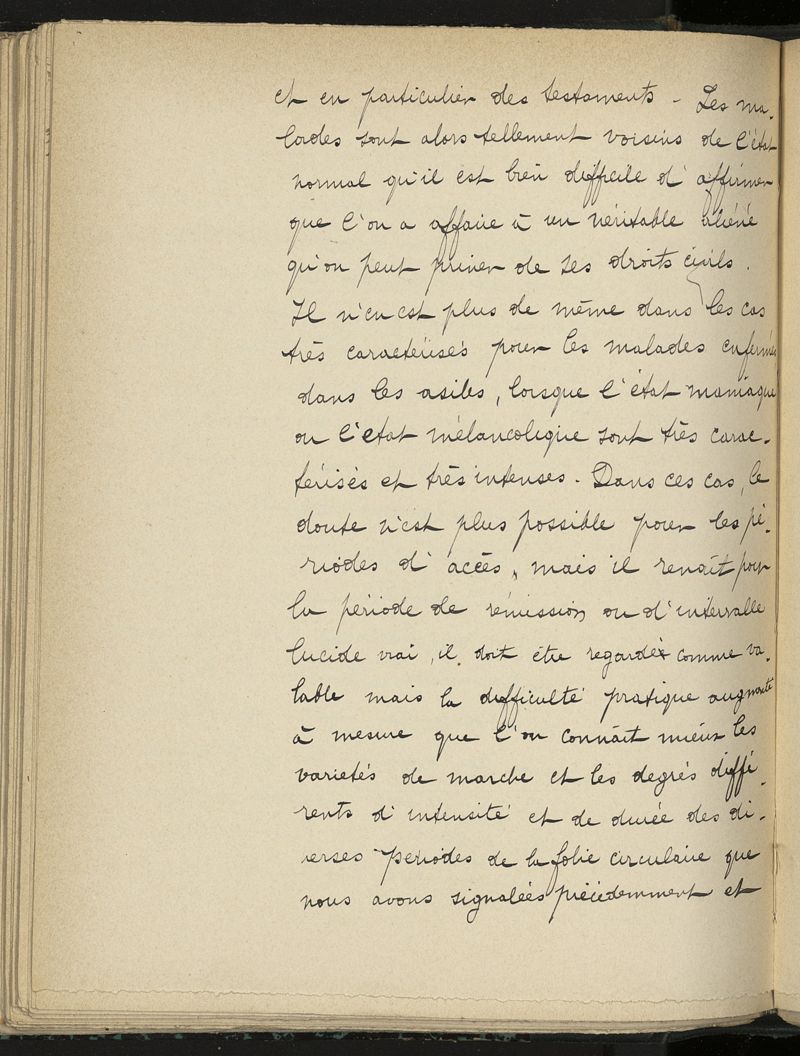 et en particulier des testaments - Les ma-
lades sont alors tellement voisins de l'état
normal qu'il est bien difficile d'affirmer
que l'on a affaire à un véritable aliéné
qu'on peut priver de ses droits civils.
Il n'en est plus de même dans les cas
très caractérisés pour les malades enfermés
dans les asiles, lorsque l'état maniaque
ou l'état mélancolique sont très carac-
térisés et très intenses. Dans ces cas, le
doute n'est plus possible pour les pé-
riodes d'accès, mais il renait pour
la période de rémission ou d'intervalle
lucide vrai, il doit être regardé comme va-
lable mais la difficulté pratique augmente
à mesure que l'on connait mieux les
varietés de marche et les degrés diffé-
rents d'intensité et de durée des di-
verses periodes de la folie circulaire que
nous avons signalées précédemment et